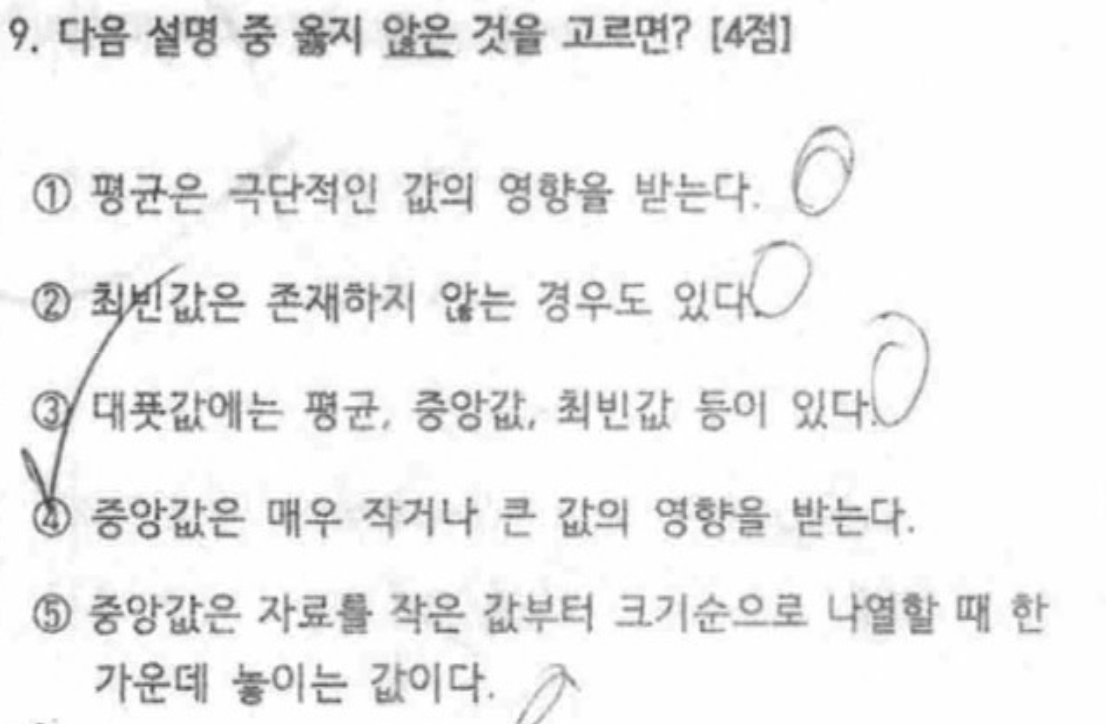 9. 다음 설명 중 옳지 않은 것을 고르면? [4점]
① 평균은 극단적인 값의 영향을 받는다.
② 최빈값은 존재하지 않는 경우도 있다.
③ 대푯값에는 평균, 중앙값, 최빈값 등이 있다.
④ 중앙값은 매우 작거나 큰 값의 영향을 받는다.
⑤ 중앙값은 자료를 작은 값부터 크기순으로 나열할 때 한
가운데 놓이는 값이다.